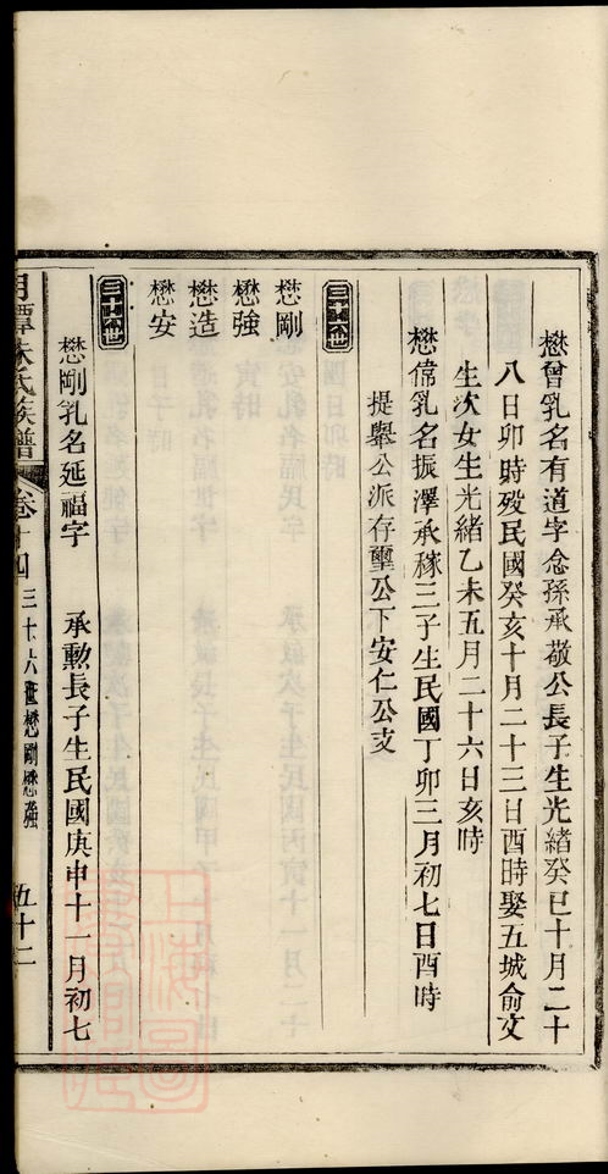 懋曾乳名有道字念孫承敬公長子生光緒癸巳十月二十
八日卯時歿民國癸亥十月二十三日酉時娶五城俞文
生次女生光緒乙未五月二十六日亥時
懋偉乳名振澤承稼三子生民國丁卯三月初七日酉時
提舉公派存璽公下安仁公支
三十六世
懋剛
懋強
懋造
懋安
三十六世
懋剛乳名延福字　承勳長子生民國庚申十一月初七
月潭朱氏族譜　卷十四　三十六世懋剛懋強　五十二